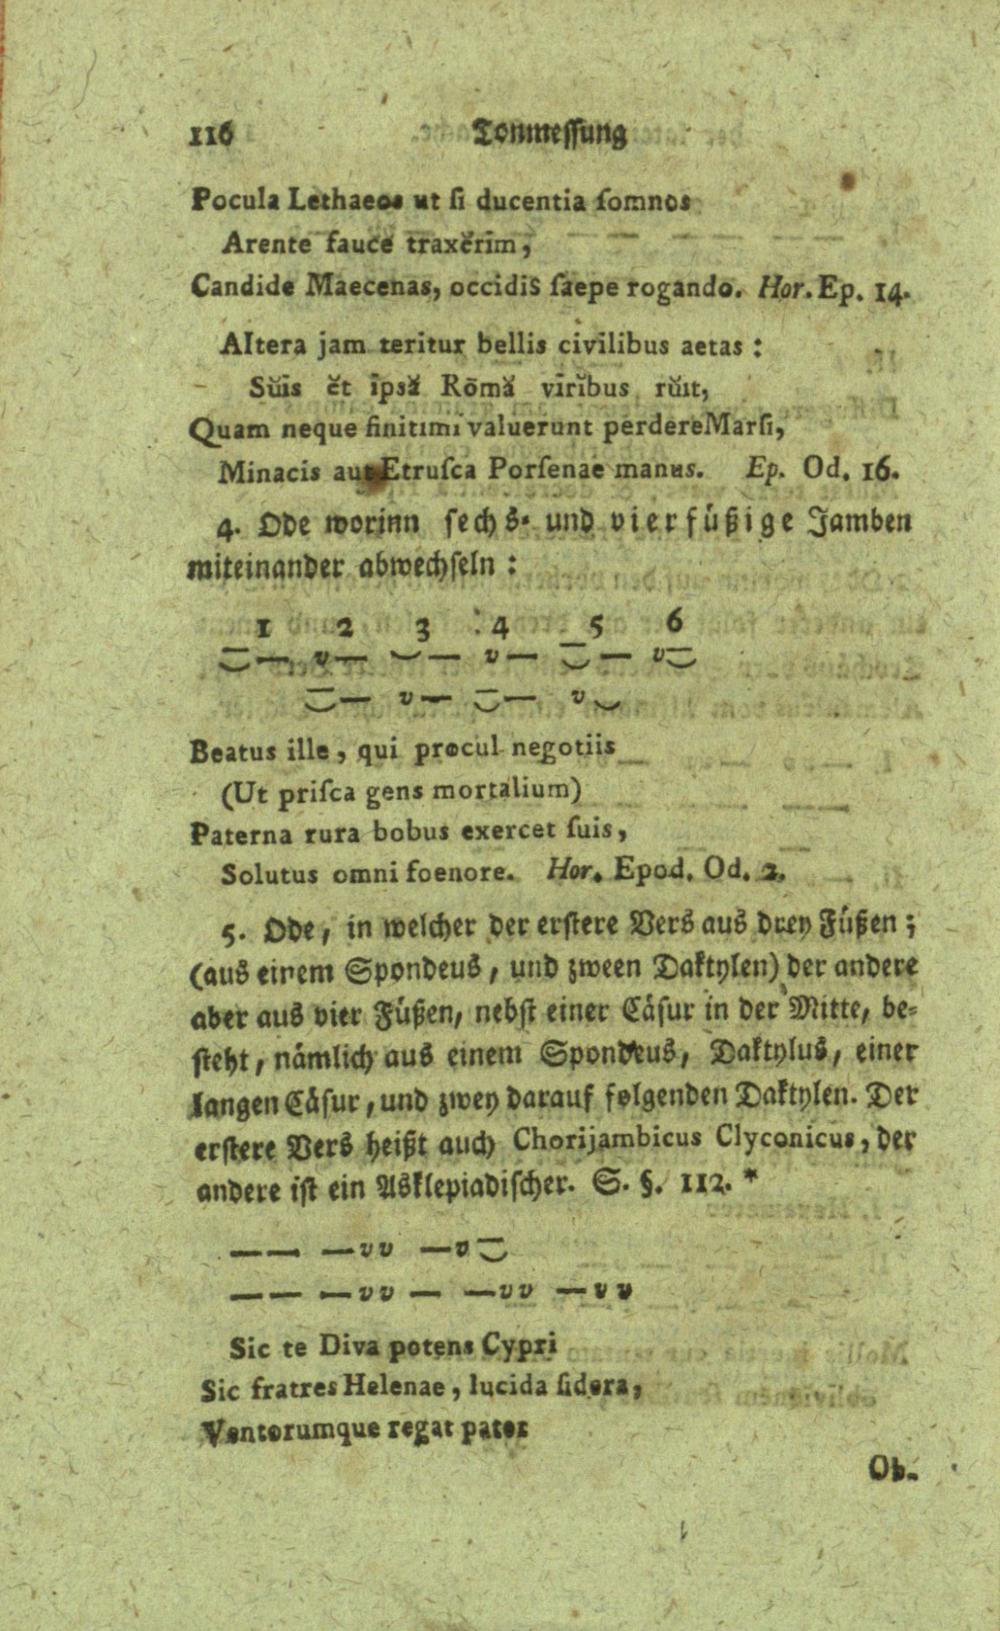 116 Tonmessung
Pocula Lethaeos ut ſi ducentia ſomnos
Arente fauce traxĕrīm,
Candide Maecenas, occidis ſaepe rogando. Hor. Ep. 14.
Altera jam teritur bellis civilibus aetas:
Sŭīs ĕt īpsă Rōmă vīrĭbus rŭit,
Quam neque finitimi valuerunt perdere Marſi,
Minacis aut Etruſca Porſenae manus. Ep. Od. 16.
4. Ode worinn ſechs- und vierfüßige Jamben
miteinander abwechſeln:
1 2 3 4 5 6
⏓— v— ⏑— v— ⏓— v⏓
⏓— v— ⏓— v⏑
Beatus ille, qui procul negotiis
(Ut priſca gens mortalium)
Paterna rura bobus exercet ſuis,
Solutus omni foenore. Hor. Epod. Od. 2.
5. Ode, in welcher der erſtere Vers aus drey Füßen;
(aus einem Spondeus, und zween Daktylen) der andere
aber aus vier Füßen, nebſt einer Cäſur in der Mitte, be-
ſteht, nämlich aus einem Spondeus, Daktylus, einer
langen Cäſur, und zwey darauf folgenden Daktylen. Der
erſtere Vers heißt auch Chorijambicus Clyconicus, der
andere iſt ein Asklepiadiſcher. S. §. 112. *
—— —vv —v⏓
—— —vv — —vv —vv
Sic te Diva potens Cypri
Sic fratres Helenae, lucida ſidera,
Ventorumque regat pater
Ob-